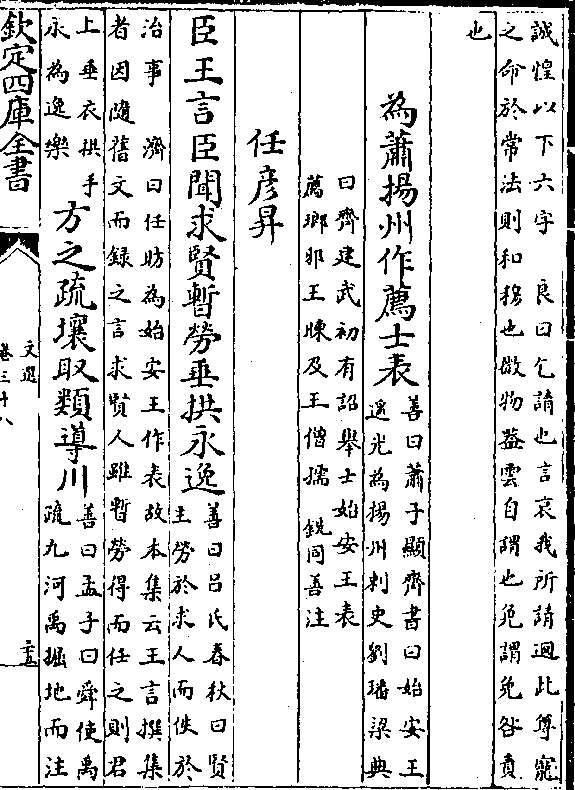 誠惶以下六字　良曰乞請也言哀我所請迴此尊寵
之命於常法則和穆也儌物益雲自謂也免謂免咎責
也
為蕭揚州作薦士表
善曰蕭子顯齊書曰始安王
遥光為揚州刺史劉璠梁典
曰齊建武初有詔舉士始安王表
薦瑯邪王暕及王僧孺　銑同善注
任彥昇
臣王言臣聞求賢暫勞垂拱永逸
善曰吕氏春秋曰賢
主勞於求人而佚於
治事　濟曰任昉為始安王作表故本集云王言撰集
者因隨舊文而録之言求賢人雖暫勞得而任之則君
上垂衣拱手
永為逸樂
方之疏壤取類導川
善曰孟子曰舜使禹
疏九河禹掘地而注
欽定四庫全書
文選
卷三十八